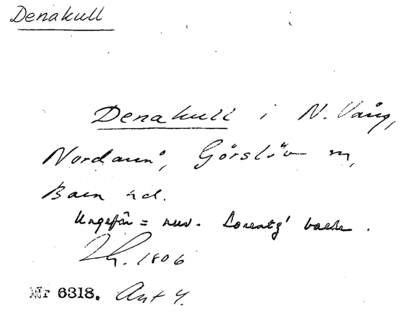 Denakull
Denakull i N. Vång,
Nordanå, Görslöv sn,
Bara hd.
Ungefär = nuv. Lorentz' backe.
Lh. 1806
Nr 6318. Ant 4.